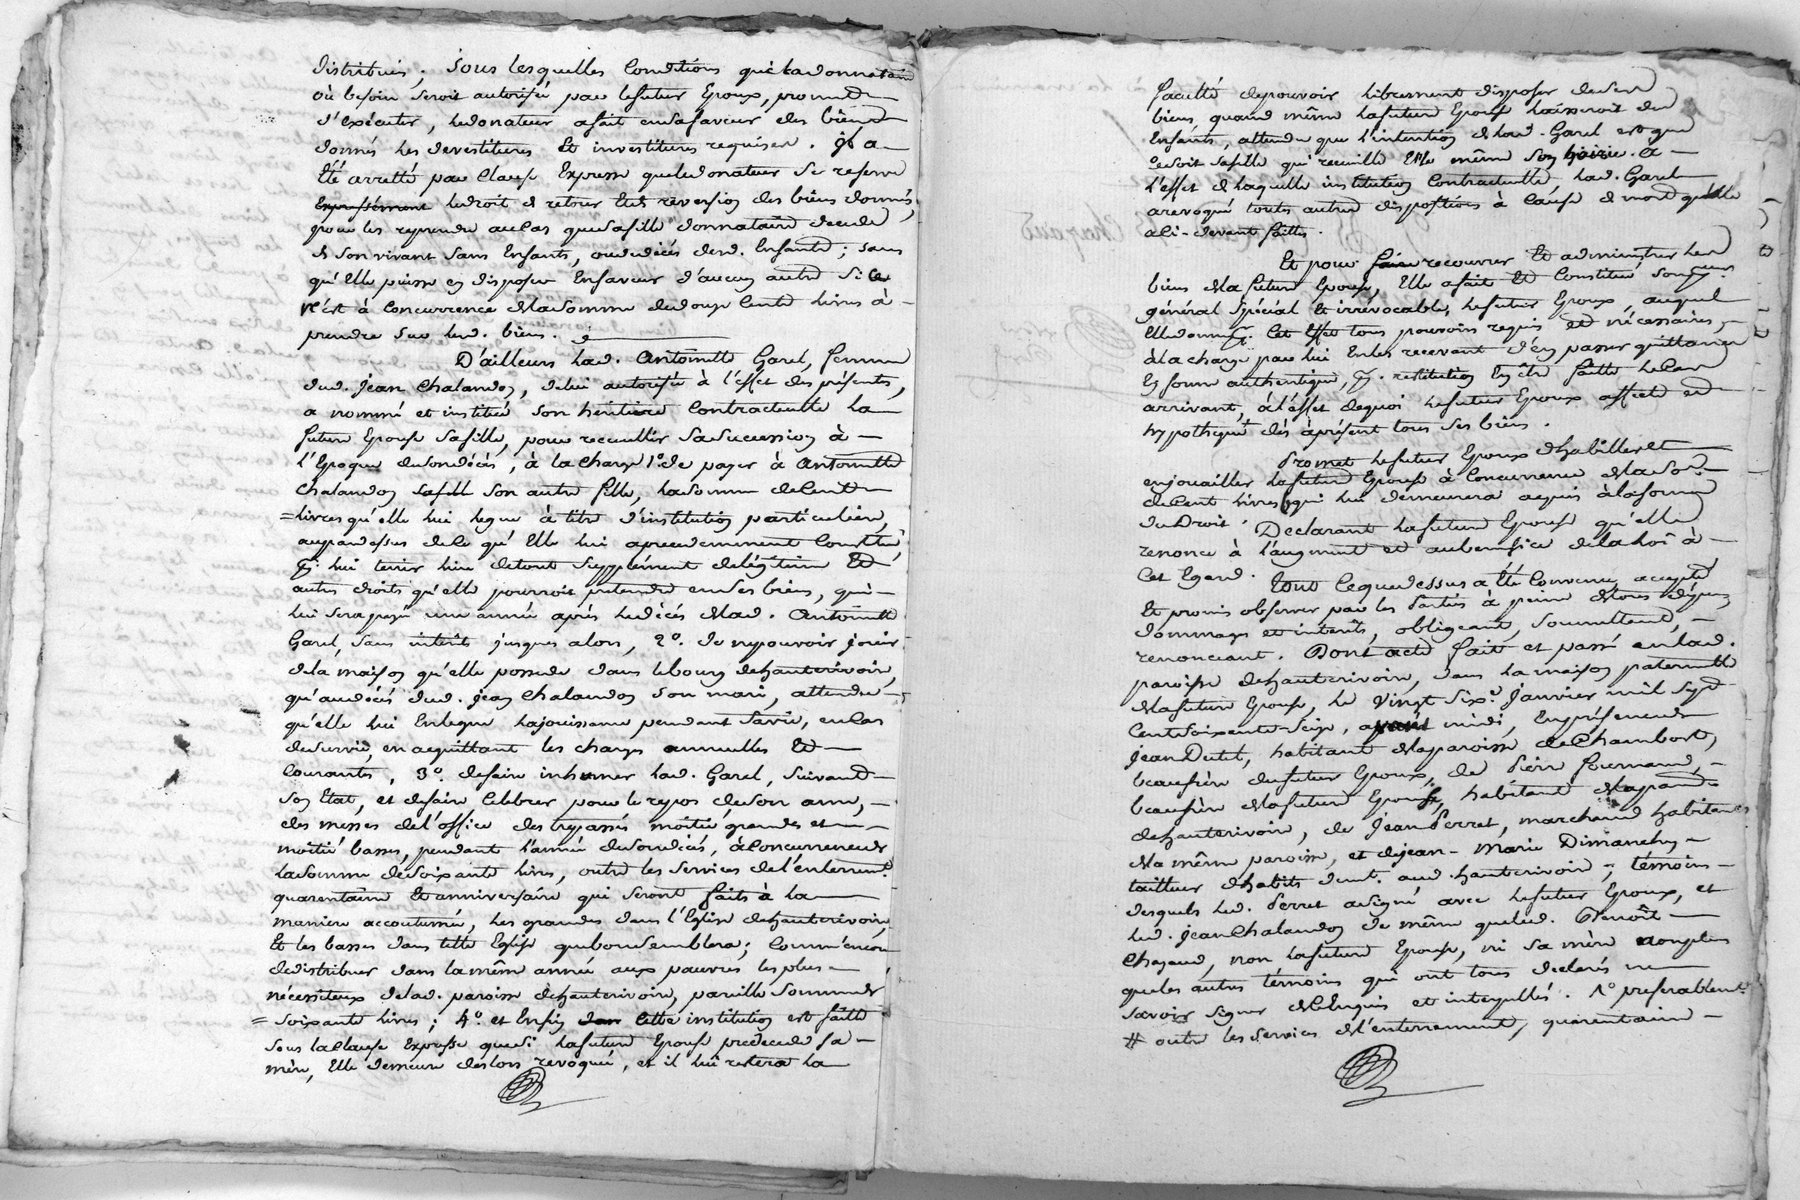 distribués; sous lesquelles conditions que la donnataire
où besoin seroit autorisée par le futur Epoux, promet
d'exécuter, le donateur a fait en sa faveur des biens
donnés les devestitures Et investitures requises. Il a
Eté arretté par clause Expresse que le donateur se reserve
Expressément le droit de retour Et de reversion des biens donnés,
pour les reprendre au cas que sa fille donnataire decede
de son vivant sans Enfants, ou du décès desd. Enfants; sans
qu'Elle puisse en disposer En faveur d'aucun autre si ce
n'est à concurrence de la somme de douze cents livres à
prendre sur lesd. biens.
D'ailleurs lad. Antoinette Garel, femme
dud. Jean Chalandon, de lui autorisée à l'effet des présentes,
a nommé et institué son héritiere contractuelle la
future Epouse sa fille, pour recueillir sa succession à
l'Epoque de son décès, à la charge 1º. de payer à Antoinette
Chalandon sa fille son autre fille, la somme de cent
=livres qu'elle lui legue à titre d'institution particuliere,
au par dessus de ce qu'Elle lui a precedemment constitué,
pr. lui tenir lieu de tout supplément de légitime Et
autres droits qu'elle pourroit prétendre en ses biens, qui
lui sera payée une année après le décès de lad. Antoinette
Garel, sans intérêts jusques alors, 2º. de ne pouvoir jouir
de la maison qu'elle possede dans le bourg de hauterivoire,
qu'au décès dud. Jean Chalandon son mari, attendu
qu'elle lui En legue la jouissance pendant sa vie, en cas
de survie, en acquittant les charges annuelles Et
courantes, 3º. de faire inhumer lad. Garel, suivant
son Etat, et de faire célébrer pour le repos de son ame,
des messes de l'office des trepassés moitié grandes et
moitié basses, pendant l'année de son décès, à concurrence de
la somme de soixante livres, outre les services de l'enterrement.
quarantaine Et anniversaire qui seront faits à la
maniere accoutumée, les grandes dans l'Eglise de hauterivoire,
Et les basses dans telle Eglise que bon semblera; comm'encore
de distribuer dans la même année aux pauvres les plus
nécessiteux de lad. paroisse de hauterivoire, pareille somme de
= soixante livres; 4º. et Enfin cette institution est faitte
sous la clause Expresse que si la future Epouse prédecede sa
mère, Elle demeure deslors revoquée, et il lui restera la
faculté de pouvoir librement disposer de ses
biens, quand même la future Epouse laisseroit des
Enfants, attendu que l'intention de lad. Garel est que
ce soit sa fille qui recueille Elle même son hoirie. à
l'effet de laquelle institution contractuelle lad. Garel
a revoqué touts autres dispositions à cause de mort qu'elle
a ci-devant faittes.
Et pour recouvrer Et administrer les
biens de la future Epouse, Elle a fait Et constitué son pcur
général spécial Et irrévocable, le futur Epoux, auquel
Elle donne pr. cet effet tous pouvoirs requis et nécessaires,
à la charge par lui En les recevant d'en passer quittance
En forme authentique, pr. restitution En être faitte le cas
arrivant, à l'effet de quoi le futur Epoux affecte et
hypotheque dès àprésent tous ses biens.
Promet le futur Epoux d'habiller et
enjouailler la future Epouse à concurrence de la some.
de cent livres qui lui demeurera acquis à la forme
du Droit. Declarant la future Epouse qu'elle
renonce à l'augment et au benefice de la loi à
cet Egard. Tout ce que dessus a Eté convenu, accepté
Et promis observer par les Parties à peine de tous dépens,
dommages et intérêts, obligeant, soumettant,
renonceant. Dont acte fait et passé en lad.
paroisse de hauterivoire, dans la maison paternelle
de la future Epouse, le vingt six. Janvier mil sept
cent soixante-seize, avant midi, En présence de
Jean Dutel, habitant de la paroisse de Chambost,
beaufrère du futur Epoux, de Pierre fournand,
beaufrère de la future Epouse, habitant de la par.
de hauterivoire, de Jean Perret, marchand habitants
de la même paroisse, et de jean-Marie Dimanchy
tailleur d'habits demt. aud. hauterivoire; témoins
desquels led. Perret a signé avec le futur Epoux, et
led. Jean Chalandon de même que led. Benoît
Chazaud, non la future Epouse, ni sa mère non plus
que les autres témoins qui ont tous declarés ne
savoir signer de ce Enquis et interpellés. 1º preferablemt.
# outre les services de l'enterrement, quarantaine